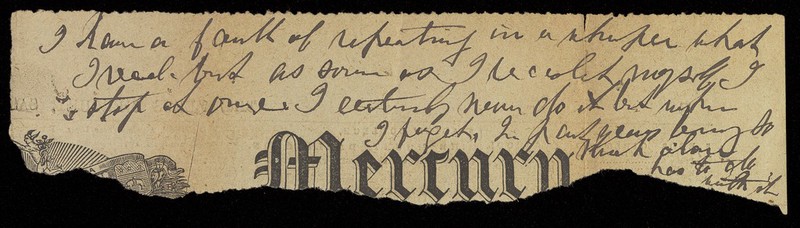 I have a fault of repeating in a whisper what
I read but as soon as I recolect myself I
stop at once. I certainly never do it but when
I forget. In fact
think
has to do
with it
Mercury